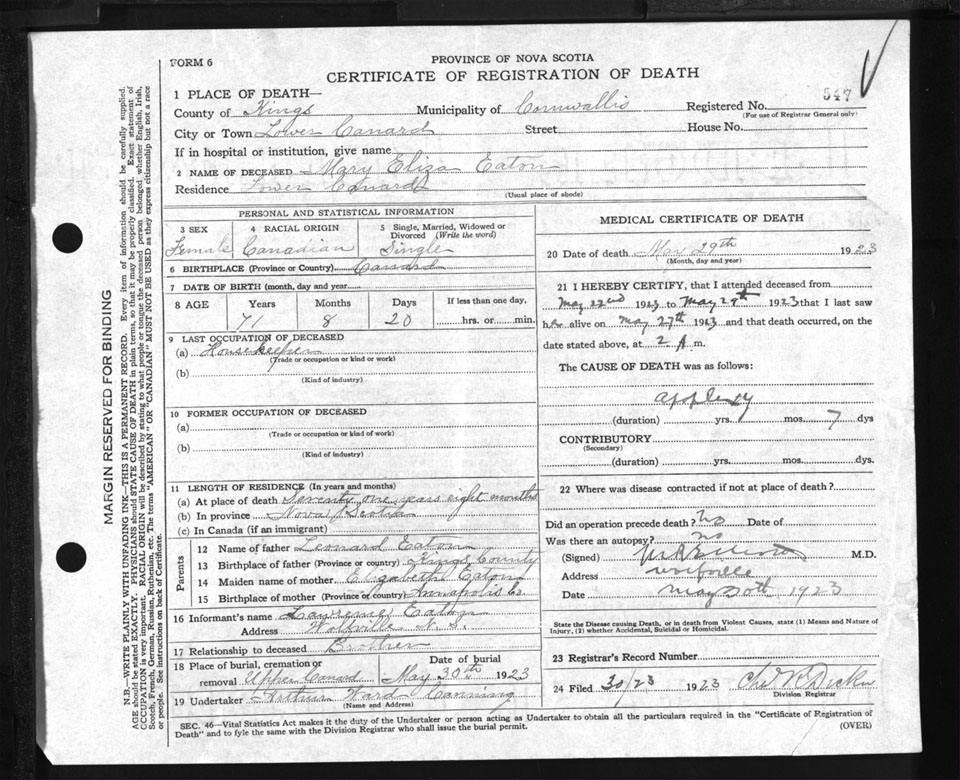 FORM 6
PROVINCE OF NOVA SCOTIA
CERTIFICATE OF REGISTRATION OF DEATH
1 PLACE OF DEATH—
County of Kings Municipality of Cornwallis Registered No. 547
(For use of Registrar General only)
City or Town Lower Canard Street House No.
If in hospital or institution, give name
2 NAME OF DECEASED Mary Eliza Eaton
Residence Lower Canard
(Usual place of abode)
PERSONAL AND STATISTICAL INFORMATION
3 SEX 4 RACIAL ORIGIN 5 Single, Married, Widowed or Divorced (Write the word)
Female Canadian Single
6 BIRTHPLACE (Province or Country) Canard
7 DATE OF BIRTH (month, day and year)
8 AGE Years Months Days If less than one day,
71 8 20 hrs. or min.
9 LAST OCCUPATION OF DECEASED
(a) Housekeeper
(Trade or occupation or kind or work)
(b)
(Kind of industry)
10 FORMER OCCUPATION OF DECEASED
(a)
(Trade or occupation or kind of work)
(b)
(Kind of industry)
11 LENGTH OF RESIDENCE (In years and months)
(a) At place of death Seventy one years eight months
(b) In province Nova Scotia
(c) In Canada (if an immigrant)
Parents
12 Name of father Leonard Eaton
13 Birthplace of father (Province or country) Kings County
14 Maiden name of mother Elizabeth Eaton
15 Birthplace of mother (Province or country) Annapolis Co.
16 Informant's name Lawrence Eaton
Address Wolfville N. S.
17 Relationship to deceased Brother
18 Place of burial, cremation or removal Upper Canard Date of burial May 30th 1923
19 Undertaker Arthur Ward Canning
(Name and Address)
MEDICAL CERTIFICATE OF DEATH
20 Date of death May 29th 1923
(Month, day and year)
21 I HEREBY CERTIFY, that I attended deceased from
May 22nd 1923 to May 29th 1923 that I last saw
her alive on May 27th 1923 and that death occurred, on the
date stated above, at 2 A. m.
The CAUSE OF DEATH was as follows:
(duration) yrs. mos. 7 dys
CONTRIBUTORY
(Secondary)
(duration) yrs. mos. dys.
22 Where was disease contracted if not at place of death?
Did an operation precede death? No Date of
Was there an autopsy? no
(Signed) M.D.
Address Wolfville
Date May 30th 1923
State the Disease causing Death, or in death from Violent Causes, state (1) Means and Nature of
Injury, (2) whether Accidental, Suicidal or Homicidal.
23 Registrar's Record Number
24 Filed 30/23 1923
Division Registrar
SEC. 46—Vital Statistics Act makes it the duty of the Undertaker or person acting as Undertaker to obtain all the particulars required in the "Certificate of Registration of
Death" and to fyle the same with the Division Registrar who shall issue the burial permit. (OVER)
MARGIN RESERVED FOR BINDING
N.B.—WRITE PLAINLY WITH UNFADING INK—THIS IS A PERMANENT RECORD. Every item of information should be carefully supplied.
AGE should be stated EXACTLY. PHYSICIANS should STATE CAUSE OF DEATH in plain terms, so that it may be properly classified. Exact statement of
OCCUPATION is very important. RACIAL ORIGIN will be described by stating to what people or tongue the deceased person belonged whether English, Irish,
Scotch, French, German, Russian, Ruthenian, etc. The terms "AMERICAN" OR "CANADIAN" MUST NOT BE USED as they express citizenship but not a race
or people. See instructions on back of Certificate.